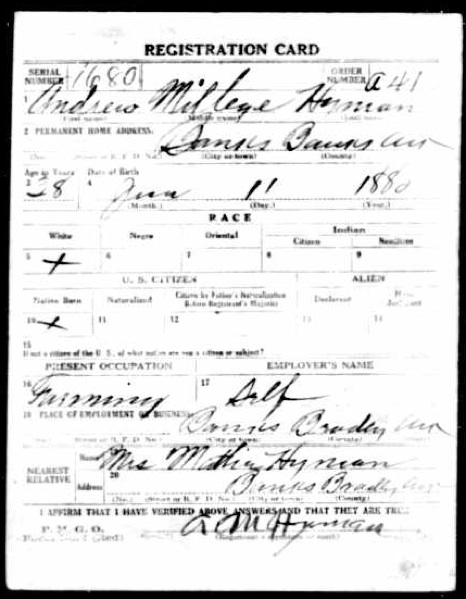 REGISTRATION CARD
SERIAL NUMBER 1680 ORDER NUMBER a 41
1 Andrew Hyman
(First name) (Middle name) (Last name)
2 PERMANENT HOME ADDRESS:
Banks Ark
(No.) (Street or R. F. D. No.) (City or town) (County)
Age in Years Date of Birth
3 38 4 11 1880
(Month.) (Day.) (Year.)
RACE
White Negro Oriental Indian
Citizen Noncitizen
5 x 6 7 8 9
U. S. CITIZEN ALIEN
Native Born Naturalized Citizen by Father's Naturalization Before Registrant's Majority Declarant
10 x 11 12 13 14
15
If not a citizen of the U. S., of what nation are you a citizen or subject?
PRESENT OCCUPATION EMPLOYER'S NAME
16 Farming 17 Self
18 PLACE OF EMPLOYMENT OR BUSINESS:
Banks Bradley Ark
(No.) (Street or R. F. D. No.) (City or town) (County)
NEAREST RELATIVE Name Mrs Hyman
Address 20 Banks Bradley Ark
(No.) (Street or R. F. D. No.) (City or town) (County)
I AFFIRM THAT I HAVE VERIFIED ABOVE ANSWERS AND THAT THEY ARE TRUE
P. M. G. O.
A M Hyman